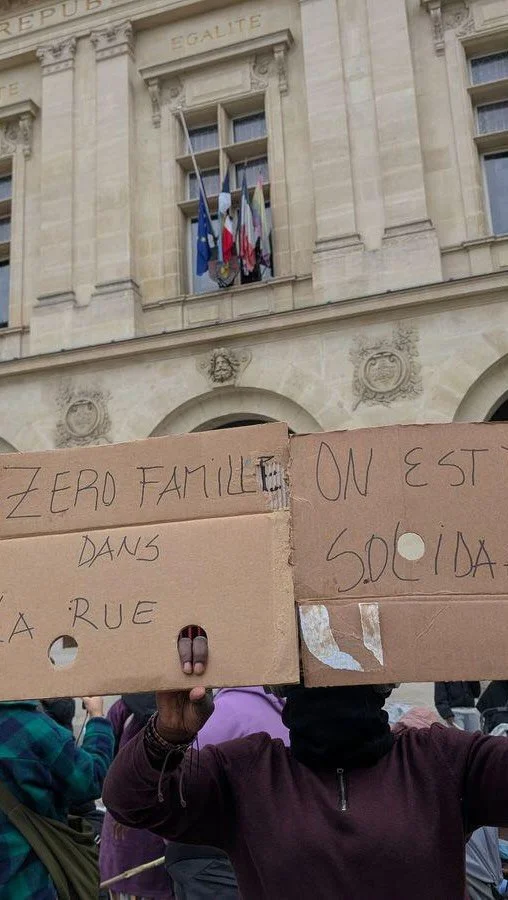 REPUB
EGALITE
TE
ZERO FAMILLE
DANS
LA RUE
ON EST
SOLIDA